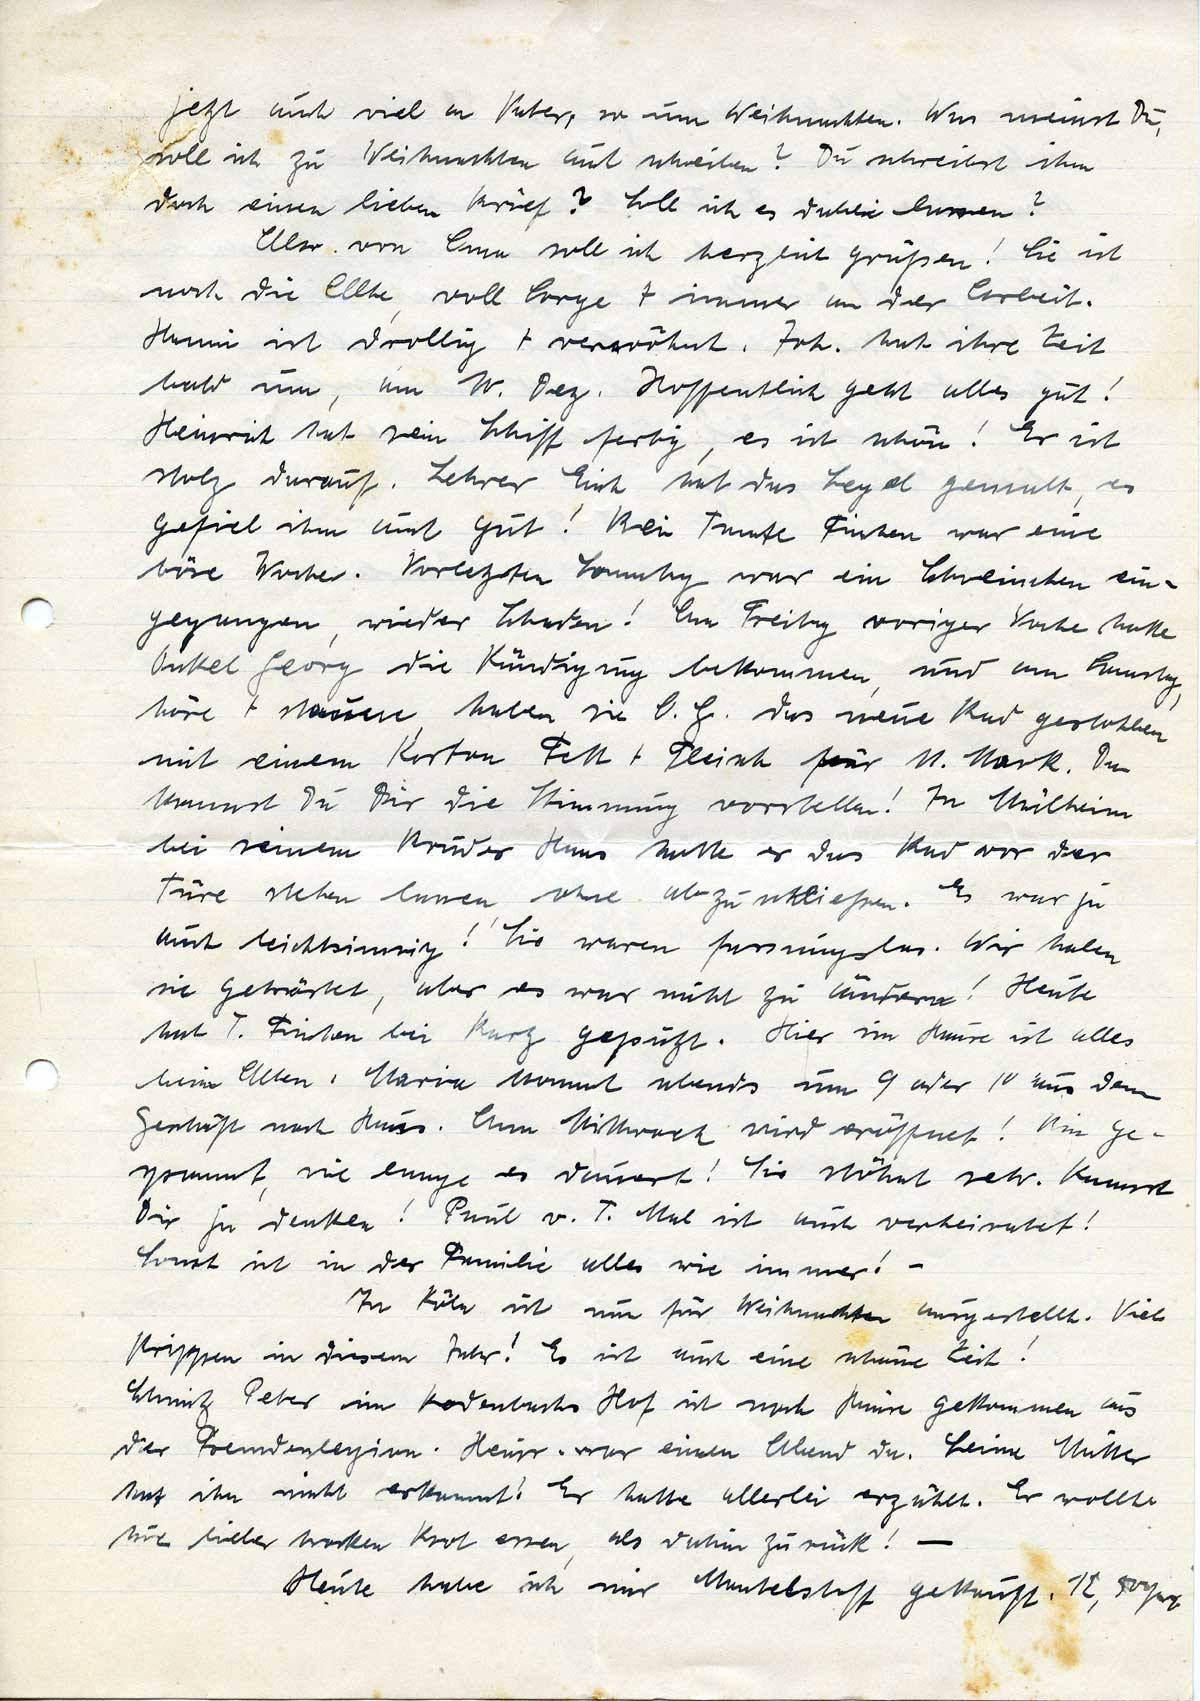 jetzt auch viel an Vater, so um Weihnachten. Was meinst Du,
soll ich zu Weihnachten auch schreiben? Du schreibst ihm
doch einen lieben Brief? Soll ich es dabei lassen?
Also von Oma soll ich herzlich grüßen! Sie ist
noch die Alte, voll Sorge + immer an der Arbeit.
Hanni ist drollig + verwöhnt. Joh. hat ihre Zeit
bald um, am 10. Dez. Hoffentlich geht alles gut!
Heinrich hat sein Schiff fertig, es ist schön! Er ist
stolz darauf. Lehrer hat das Segel gemalt, es
gefiel ihm auch gut! Bei Tante Finchen war eine
böse Woche. Vorletzten Samstag war ein Schweinchen ein-
gegangen, wieder Schaden! Am Freitag voriger Woche hatte
Onkel Georg die Kündigung bekommen, und am Samstag,
höre + staune, haben sie O. G. das neue Rad gestohlen
mit einem Karton Fett + Fleisch für Mark. Da
kannst Du Dir die Stimmung vorstellen! In Mülheim
bei seinem Bruder Hans hatte er das Rad vor der
Türe stehen lassen ohne abzuschließen. Es war ja
auch leichtsinnig! Sie waren fassungslos. Wir haben
sie getröstet, aber es war nicht zu ändern! Heute
hat T. Finchen bei Kurz geputzt. Hier im Hause ist alles
beim Alten. Maria kommt abends um 9 oder 10 aus dem
Geschäft nach Haus. Am Mittwoch wird eröffnet! Bin ge-
spannt, wie lange es dauert! Sie stöhnt sehr. Kannst
Dir ja denken! Paul v. T. Mal ist auch verheiratet!
Sonst ist in der Familie alles wie immer! –
In Köln ist nun für Weihnachten ausgestellt. Viele
Krippen in diesem Jahr! Es ist auch eine schöne Zeit!
Schmitz Peter im Rodenbachs Hof ist nach Hause gekommen aus
der Fremdenlegion. Heinr. war einen Abend da. Seine Mutter
hat ihn nicht erkannt! Er hatte allerlei erzählt. Er wollte
hie lieber trocken Brot essen, als dahin zurück! —
Heute habe ich mir Mantelstoff gekauft.